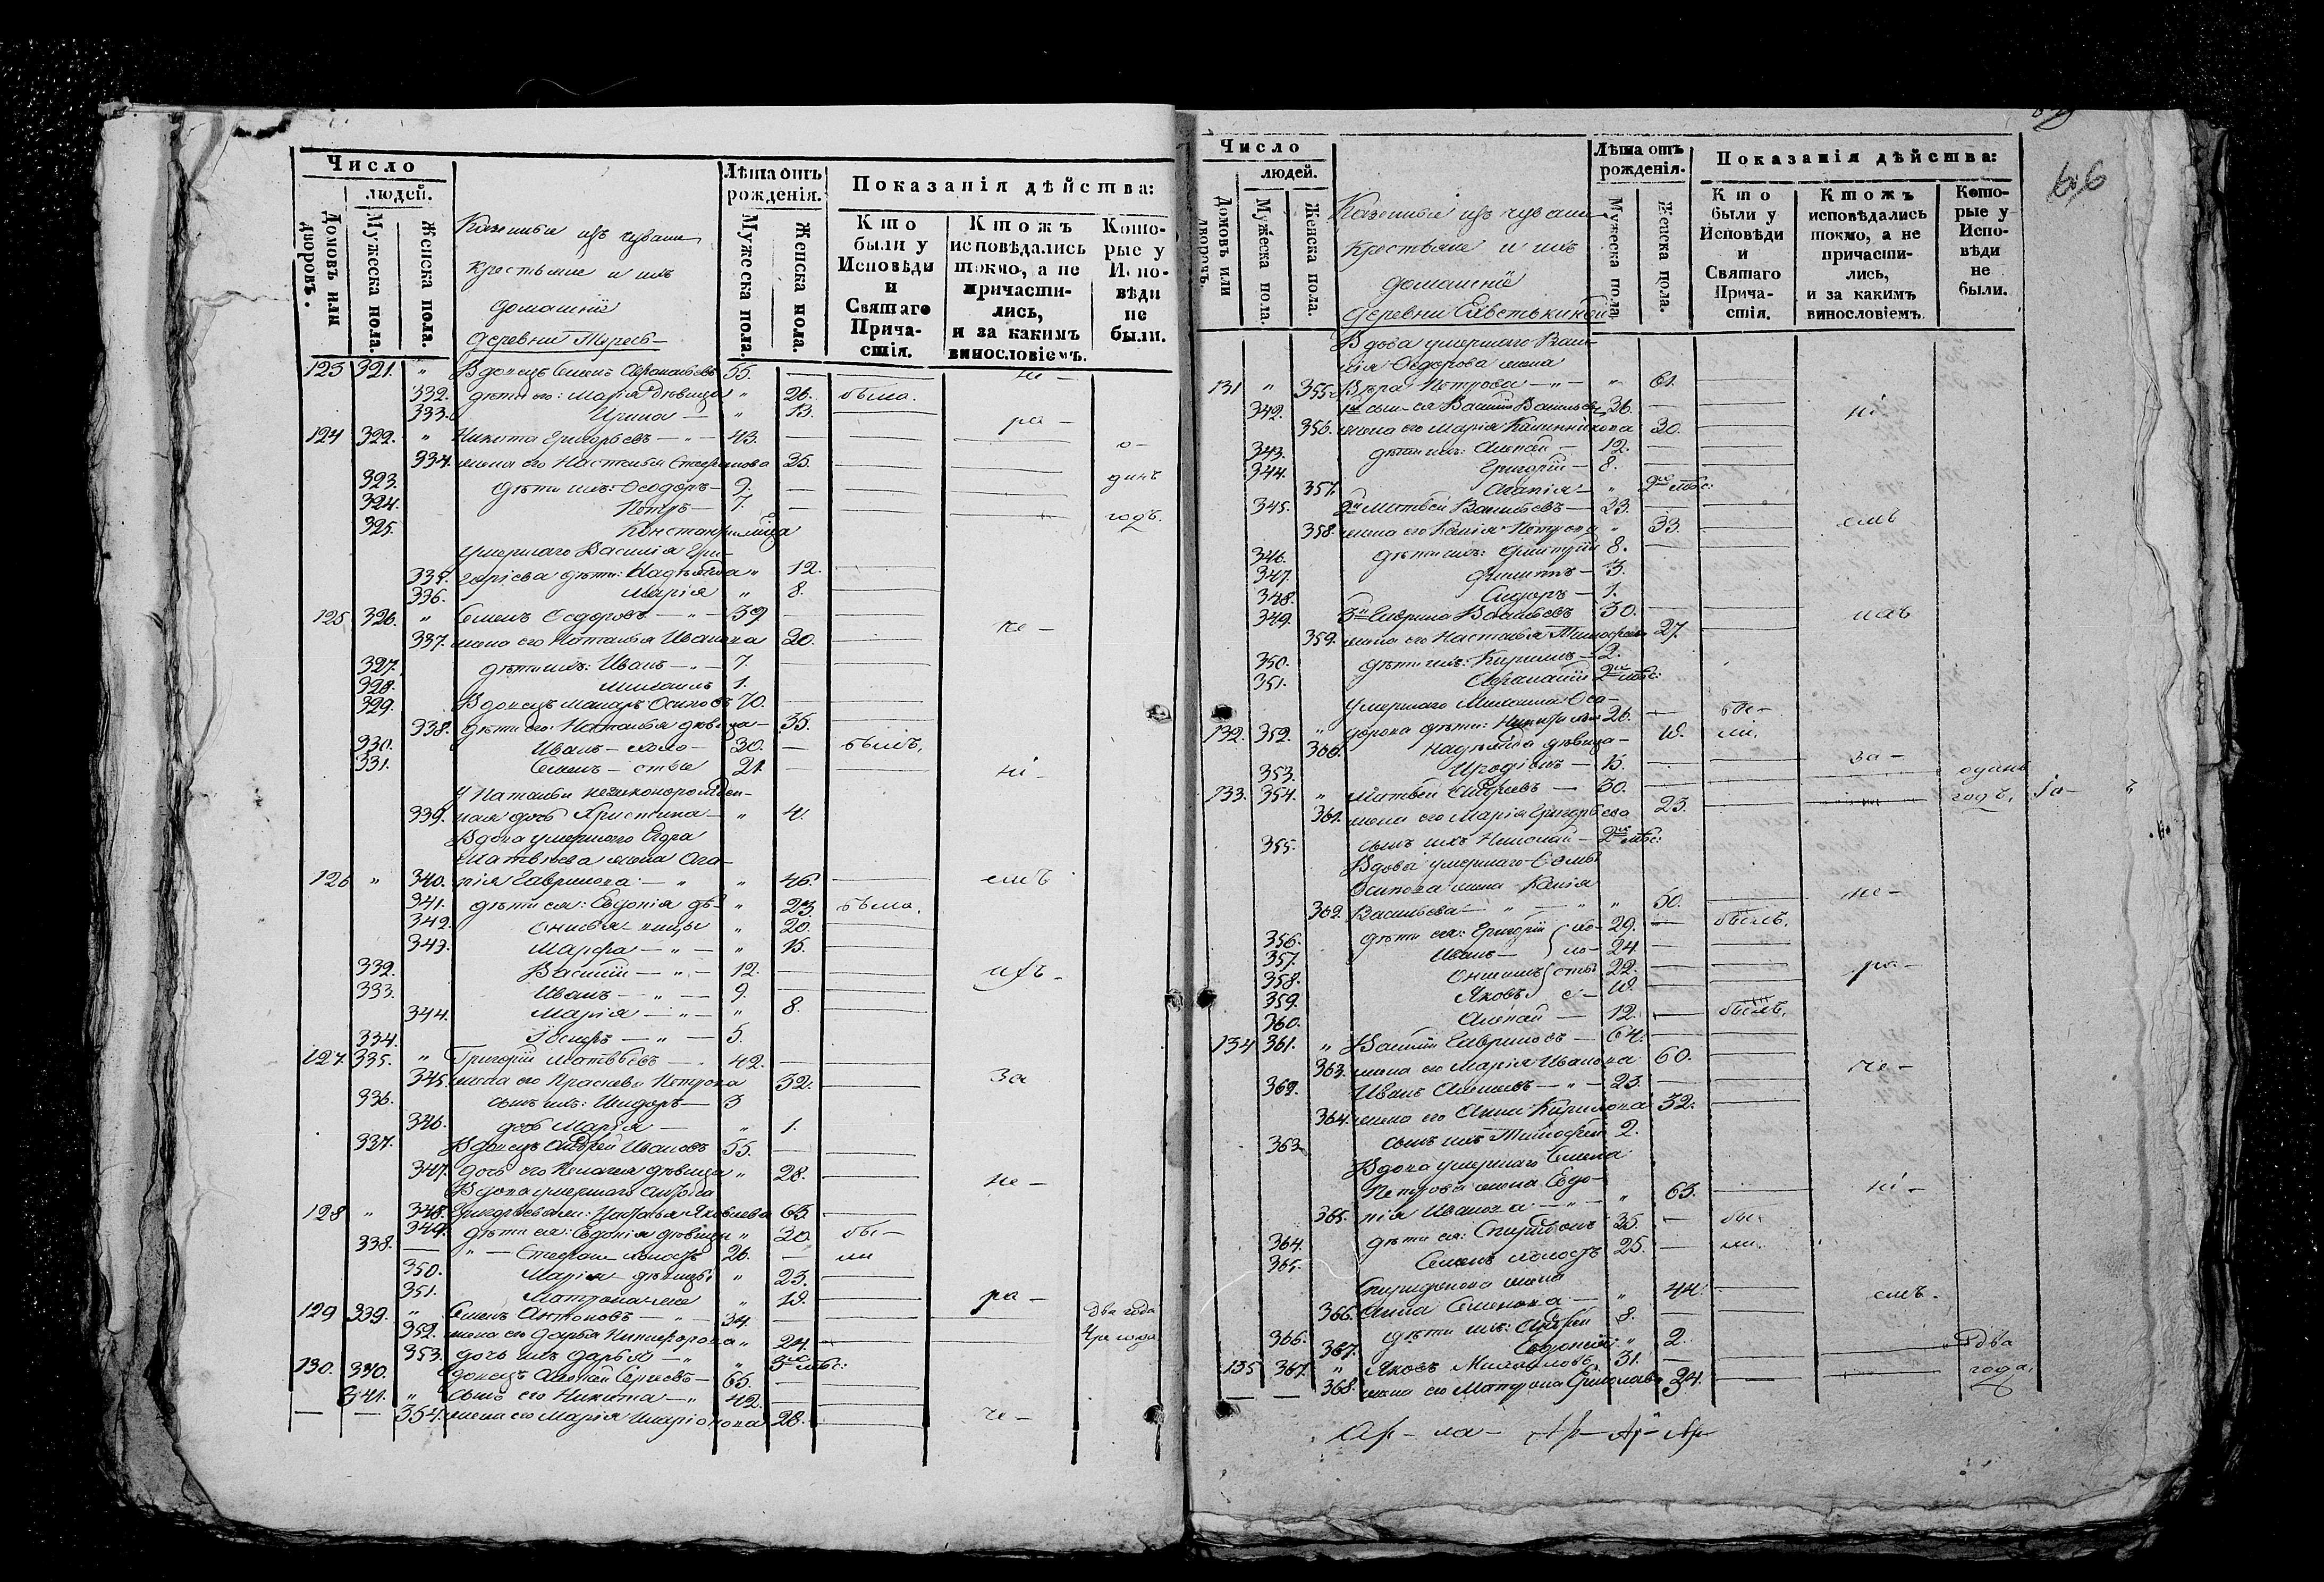 Число
людей.
Домовъ или дворовъ.
Мужеска пола.
Женска пола.
Казенныи изъ чувашъ
крестьяне и ихъ
домашніе
деревни
Лѣта отъ рожденія.
Мужеска пола.
Женска пола.
Показанія дѣйства:
Кто были у Исповѣди и Святаго Причастія.
Ктожъ исповѣдались токмо, а не причастились, и за какимъ винословіемъ.
Которые у Исповѣди не были.
123 321. " Вдовецъ Семенъ 55.
332. дѣти его: Марія дѣвица " 26. была.
333. Ирина — " 13.
124 322. " Никита Григорьевъ — " — 43.
334. жена его Настасья Стефанова 35.
323. дѣти ихъ: Ѳеодоръ — 9.
324. Петръ — 7. годъ.
325. Константинъ
умершаго Василія Гри-
335. горіева дѣти: Надежда " 12.
336. Марія " 8.
125 326. " Семенъ Ѳедоровъ — " — 39
337. жена его Наталья Иванова 30. не —
327. дѣти ихъ: Иванъ — " — 7.
328. Михаилъ 1.
329. Вдовецъ Макаръ Осиповъ 70.
338. дѣти его: Наталья дѣвица — 35.
330. Иванъ — холо — 30. — былъ.
331. Семенъ — стые 21.
У Натальи незаконорожден-
339. ная дочь Христина — " 4.
Вдова умершаго Егора
Матвѣева жена Ага-
126 " 340. пія Гаврилова — " " 46.
341. дѣти ея: Евдокія дѣ- " 23. была.
342. вицы " 20.
343. Марфа — " — " 15.
332. Василій — " — 12.
333. Иванъ — " — 9. изъ —
344. Марія — " — " 8.
334. — " — 5.
127 335. " Григорій Матвѣевъ — " 42.
345. жена его Прасковья Петрова 32. за
336. сынъ ихъ: Исидоръ — 3
346. дочь Марія — " 1.
337. Вдовецъ Андрей Ивановъ 55.
347. дочь его Пелагея дѣвица " 28. не —
Вдова умершаго
128 " 348. Наталья Яковлева 65.
349. дѣти ея: Евдокія дѣвица " 30. бы —
338. — " — Стефанъ холостъ 26. — ли
350. Марія — дѣвицы " 23.
351. " 18. ра —
129 339. " Семенъ Антоновъ — " — 34. два года
352. жена его Дарья Никифорова " 24. три года
353. дочь ихъ Дарья — " " 3 мѣс:
130. 340. Вдовецъ Алексѣй Сергѣевъ — 65.
341. " сынъ его Никита — " 42.
354. жена его Марія Иларіонова 28. че —
66
Число
людей.
Домовъ или дворовъ.
Мужеска пола.
Женска пола.
Казенныи изъ чувашъ
крестьяне и ихъ
домашніе
деревни
Лѣта отъ рожденія.
Мужеска пола.
Женска пола.
Показанія дѣйства:
Кто были у Исповѣди и Святаго Причастія.
Ктожъ исповѣдались токмо, а не причастились, и за какимъ винословіемъ.
Которые у Исповѣди не были.
Вдова умершаго Васи-
лія Ѳедорова жена
131 " 355. Вѣра Петрова — " — " 61.
342. 1й сынъ ея Василій Васильевъ 36.
356. жена его Марія Калинникова 30.
343. дѣти ихъ: Алексѣй — 12.
344. Григорій — 8.
357. Агапія — " 2 мѣс:
345. 2й Матвѣй Васильевъ — 33.
358. жена его Ксенія Петрова " 33.
346. дѣти ихъ: Дмитрій 8.
347. Филиппъ — 3.
348. Сидоръ — 1.
349. 3й Гаврила Васильевъ 30.
359. жена его Настасья Тимофеева 27.
350. дѣти ихъ: Кириллъ — 2.
351. Афанасій 2 мѣс:
умершаго Михаила Ѳео-
132. 352. " дорова дѣти: 26. — бы —
360. Надежда дѣвица — 18. ли.
353. Иродіонъ — 15. за —
133. 354. " Матвѣй Андреевъ — 30. одинъ
361. жена его Марія Григорьева 23. годъ.
355. сынъ ихъ Николай — 2 мѣс:
Вдова умершаго
Осипова жена Ксенія
362. Васильева — " — " " 50. не —
356. дѣти ея: Григорій хо- 29. — былъ.
357. Иванъ — ло- 24. —
358. Онисимъ сты 22. — ра —
359. Яковъ е — 18.
360. Алексѣй — 12. — былъ.
134 361. " Василій Гавриловъ — 64.
363. жена его Марія Иванова 60.
362. Иванъ — " — 23.
364. жена его Анна Кирилова 32.
363. сынъ ихъ Тимофей 2.
Вдова умершаго Семена
Петрова жена Евдо-
365. кія Иванова — " " 63.
364. дѣти ея: Спиридонъ 35. — бы-
365. Семенъ холостъ 25. — ли.
Спиридонова жена
366. Анна Семенова — " 44.
366. дѣти ихъ: Андрей 8.
367. Евдокія " 2. два
135 367. " Яковъ Михайловъ 31. года.
368. жена его Матрона Ермолаева 34.